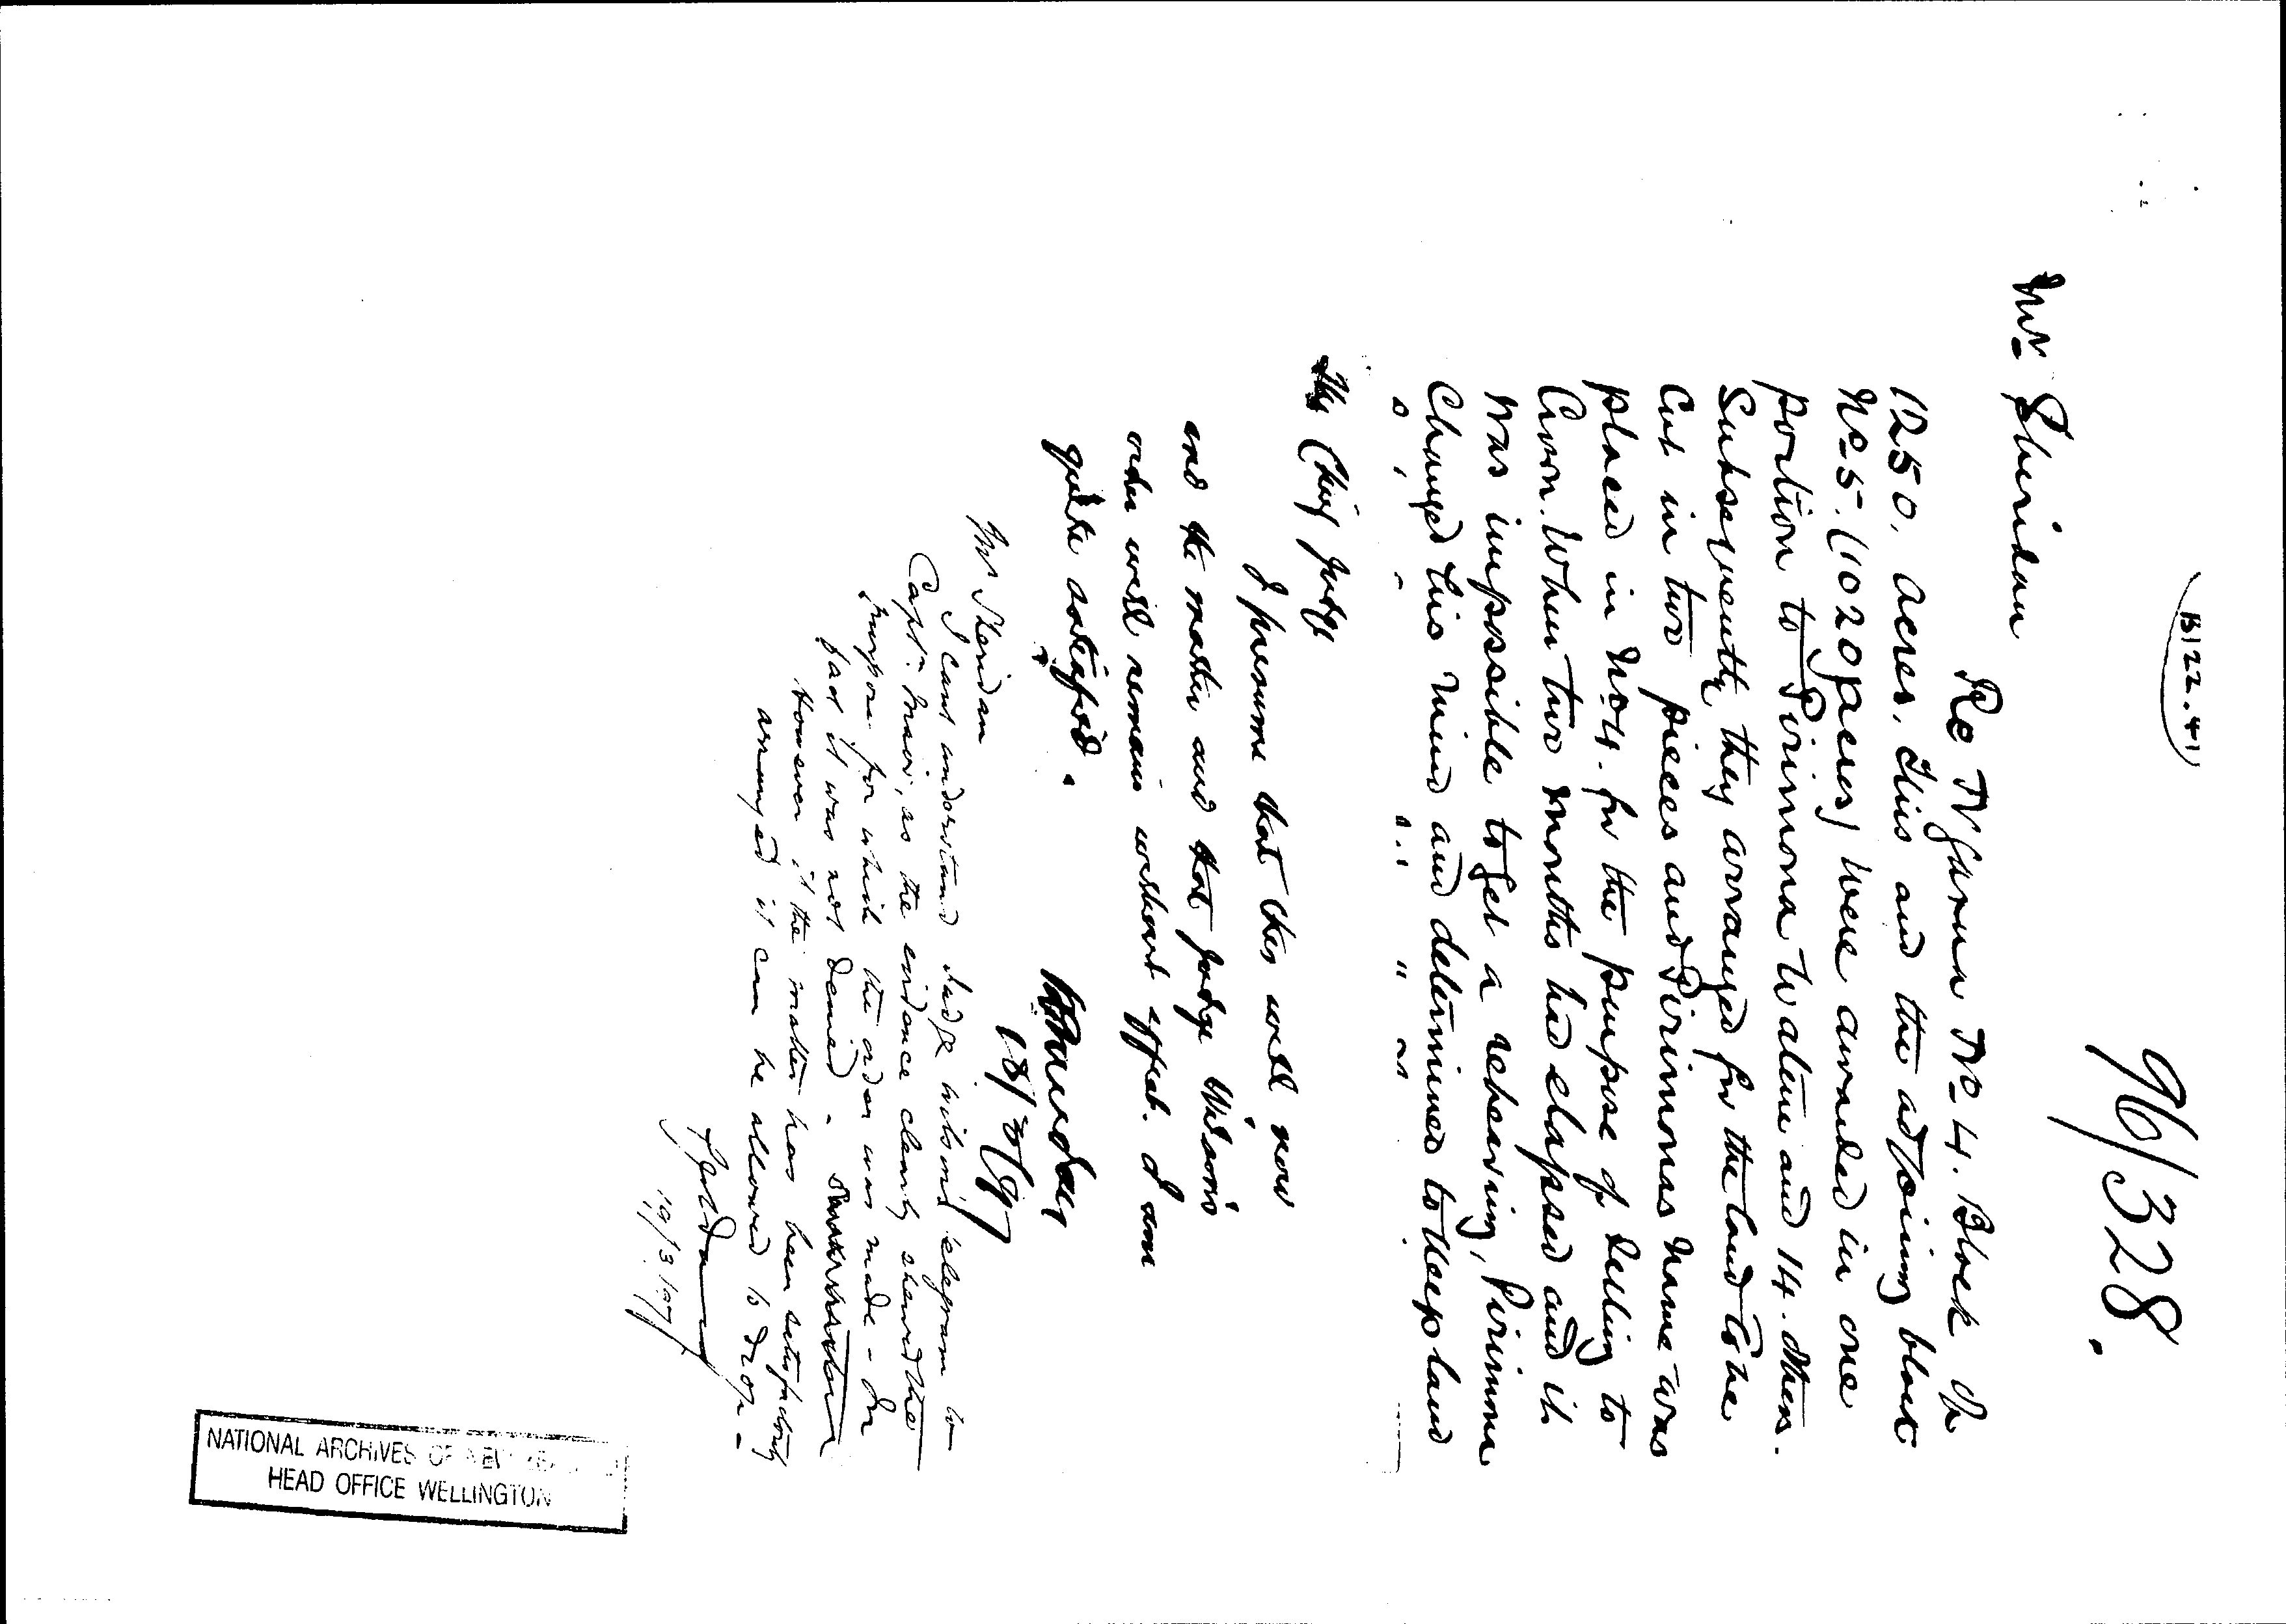 B122.41
96/328.
Mr Sheridan
Re Ngarara No 4. Block of
1250. acres. This and the adjoining block
No 5. (1020 acres) were awarded in one
portion to Pirimona te and 14. others.
Subsequently they arranged for the land to be
Cut in two pieces and Pirimonas name was
placed in No 4. for the purpose of selling to
Crown. When two months had elapsed and it
was impossible to get a rehearing, Pirimona
Changed his mind and determined to keep land
The Chief Judge
I presume that this will now
end the matter and that Judge Wilson's
order will remain without effect. I am
quite satisfied.
18/3/97
Mr Sheridan
I cant understand Judge Wilson's telegram to
Captn Mair, as the evidence clearly shewed the
purpose for which the order was made - In
fact it was not denied -
However if the matter has been satisfactorily
arranged it can be allowed to drop -
19/3/97
NATIONAL ARCHIVES OF NEW
HEAD OFFICE WELLINGTON